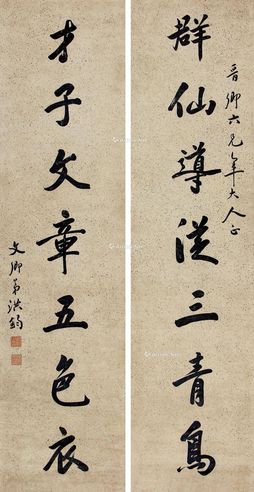 晋卿六兄年大人正
群仙導從三青鳥
才子文章五色衣
文卿弟洪鈞